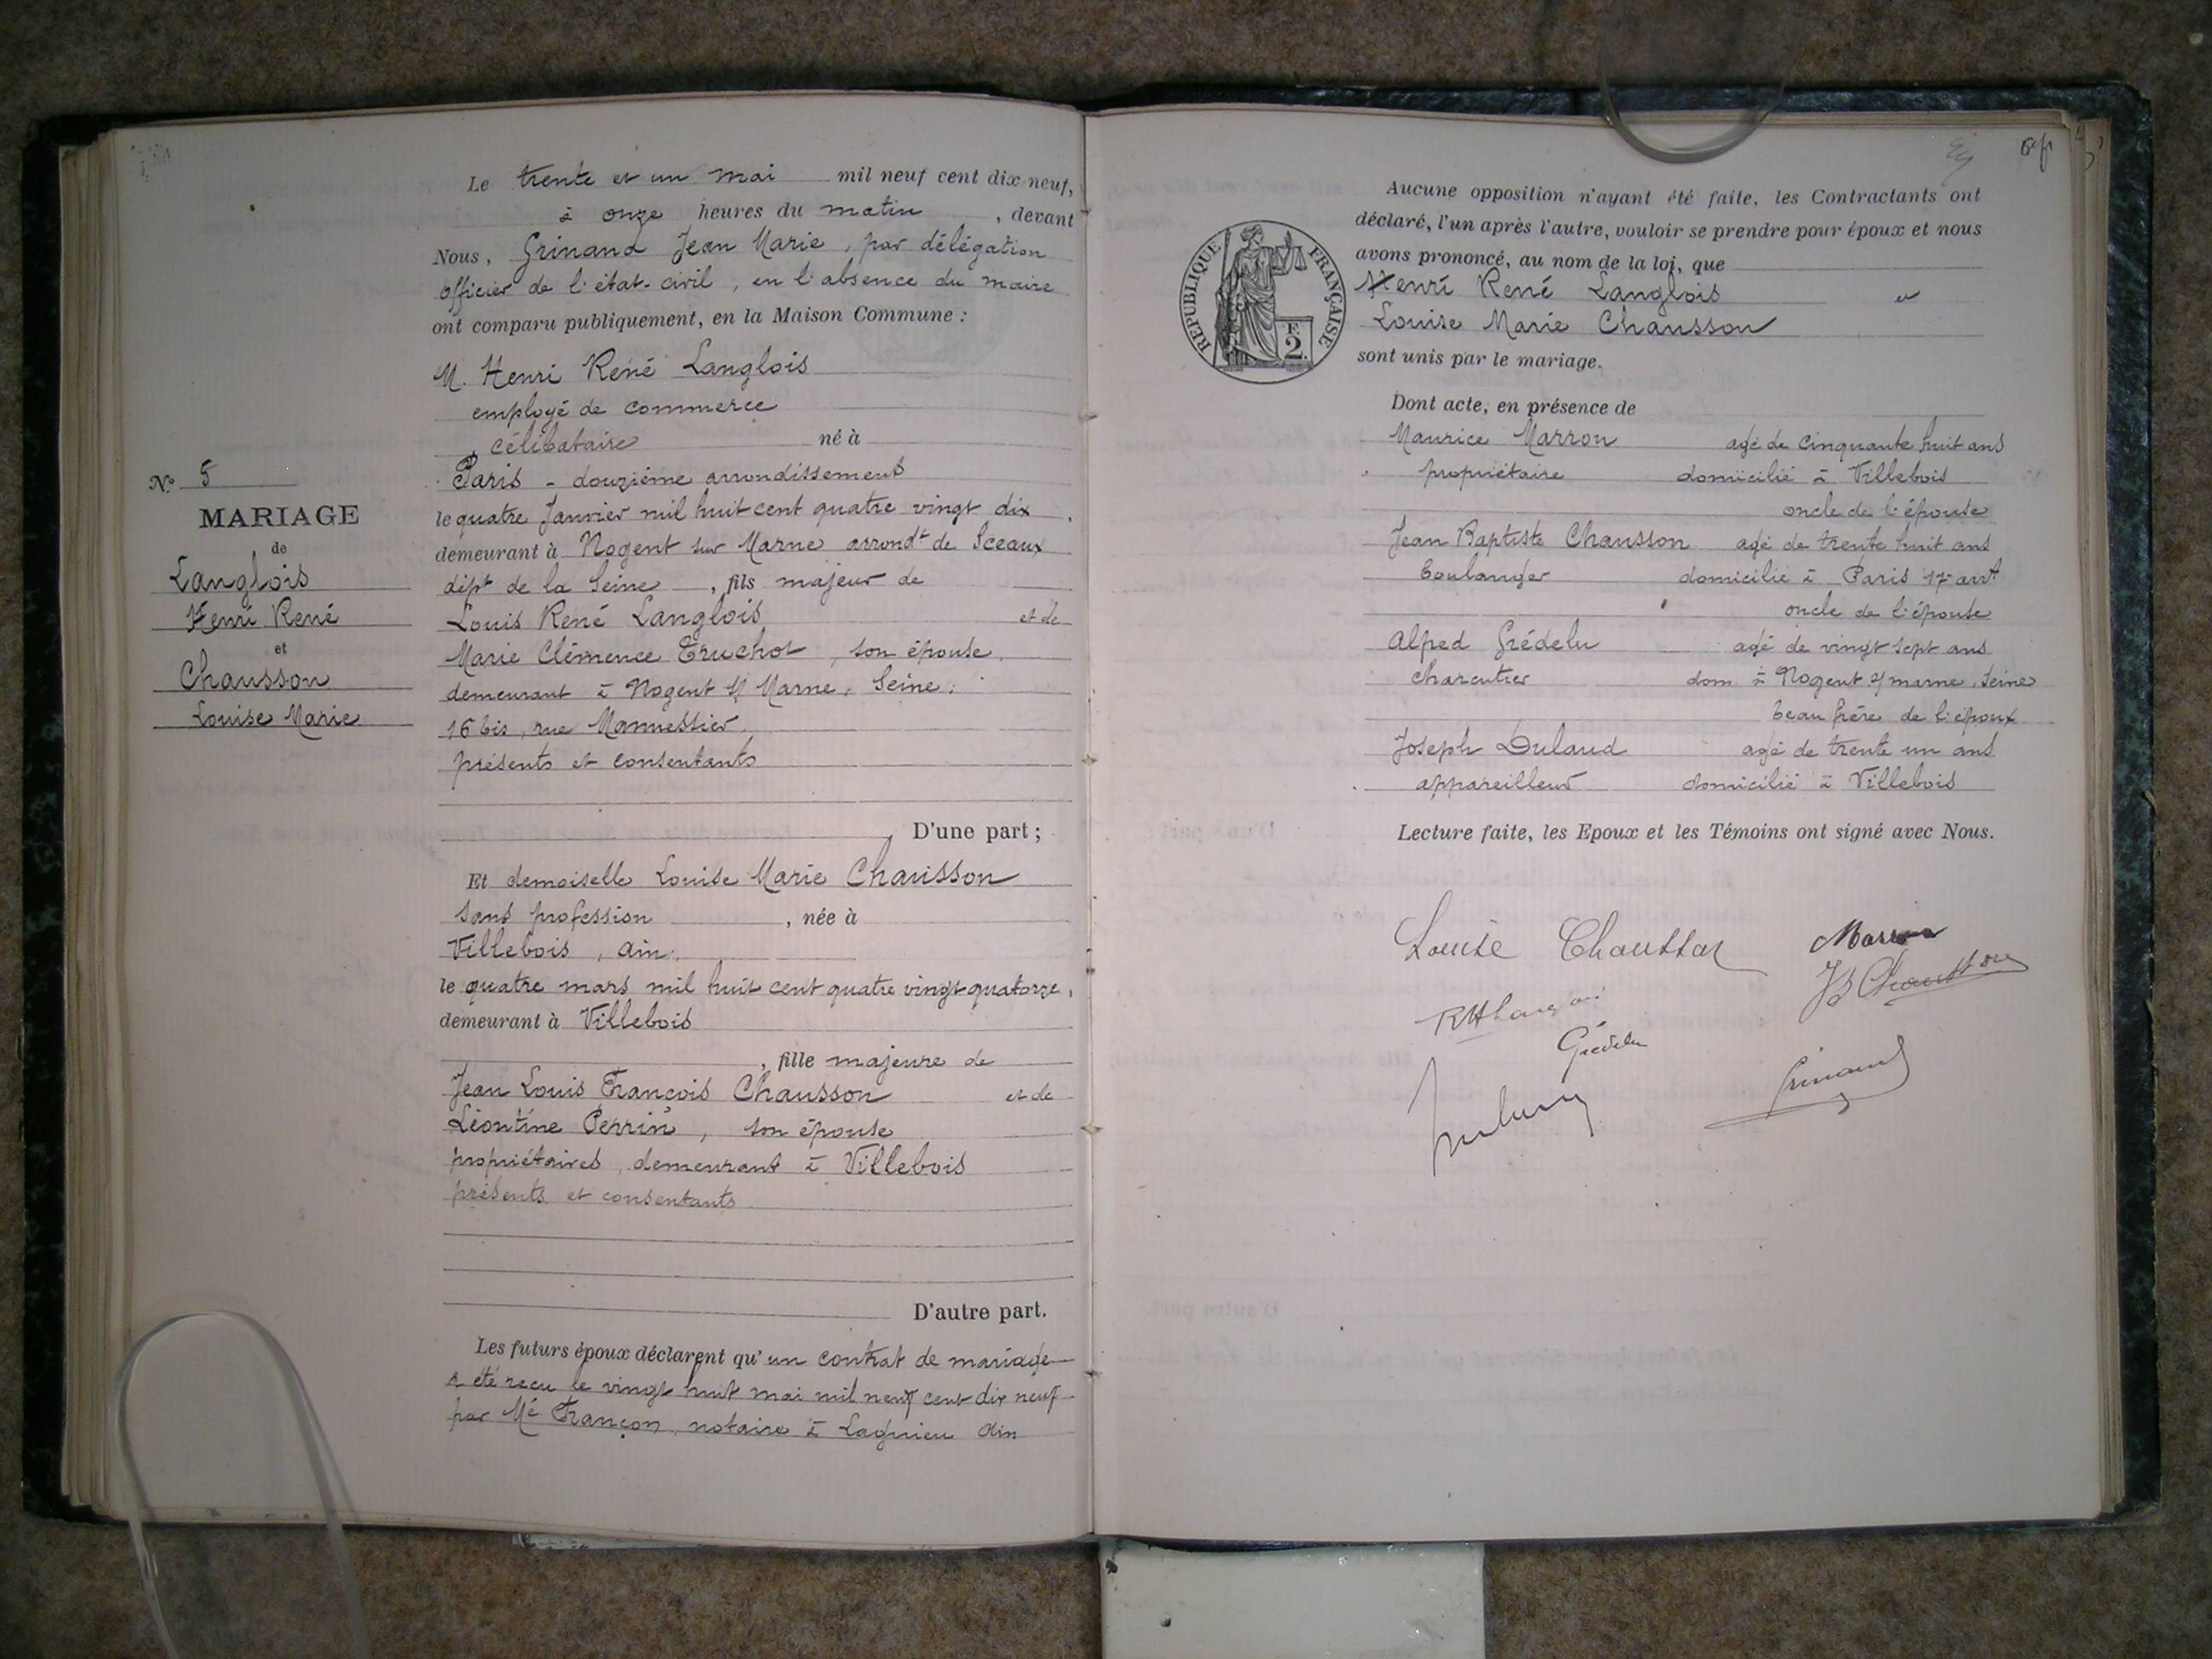 Nº 5
MARIAGE
de
Langlois
Henri René
et
Chausson
Louise Marie
Le trente et un mai mil neuf cent dix-neuf,
à onze heures du matin, devant
Nous, Grinand Jean Marie, par délégation
officier de l'état-civil, en l'absence du maire
ont comparu publiquement, en la Maison Commune :
M. Henri René Langlois
employé de commerce
célibataire né à
Paris - douzième arrondissement
le quatre Janvier mil huit cent quatre vingt dix,
demeurant à Nogent sur Marne arrondt de Sceaux
dépt de la Seine, fils majeur de
Louis René Langlois et de
Marie Clémence Truchot, son épouse,
demeurant à Nogent s/ Marne, Seine,
16 bis, rue Mannessier,
présents et consentants
D'une part ;
Et demoiselle Louise Marie Chausson
sans profession, née à
Villebois, ain,
le quatre mars mil huit cent quatre vingt quatorze,
demeurant à Villebois
, fille majeure de
Jean Louis François Chausson et de
Léontine Perrin, son épouse
propriétaires, demeurant à Villebois
présents et consentants
D'autre part.
Les futurs époux déclarent qu'un contrat de mariage
a été reçu le vingt huit mai mil neuf cent dix neuf
par Me Françon, notaire à Lagnieu Ain
RÉPUBLIQUE FRANÇAISE
2 F.
Aucune opposition n'ayant été faite, les Contractants ont
déclaré, l'un après l'autre, vouloir se prendre pour époux et nous
avons prononcé, au nom de la loi, que
Henri René Langlois et
Louise Marie Chausson
sont unis par le mariage.
Dont acte, en présence de
Maurice Marron agé de cinquante huit ans
propriétaire domicilié à Villebois
oncle de l'épouse
Jean Baptiste Chausson agé de trente huit ans
boulanger domicilié à Paris 17e arrt
oncle de l'épouse
Alfred Grédelu agé de vingt sept ans
charcutier dom. à Nogent s/ marne, Seine
beau frère de l'époux
Joseph Dulaud agé de trente un ans
appareilleur domicilié à Villebois
Lecture faite, les Epoux et les Témoins ont signé avec Nous.
Louise Chausson Marron
JB Chausson
RHLanglois
Grédelu
Grinand